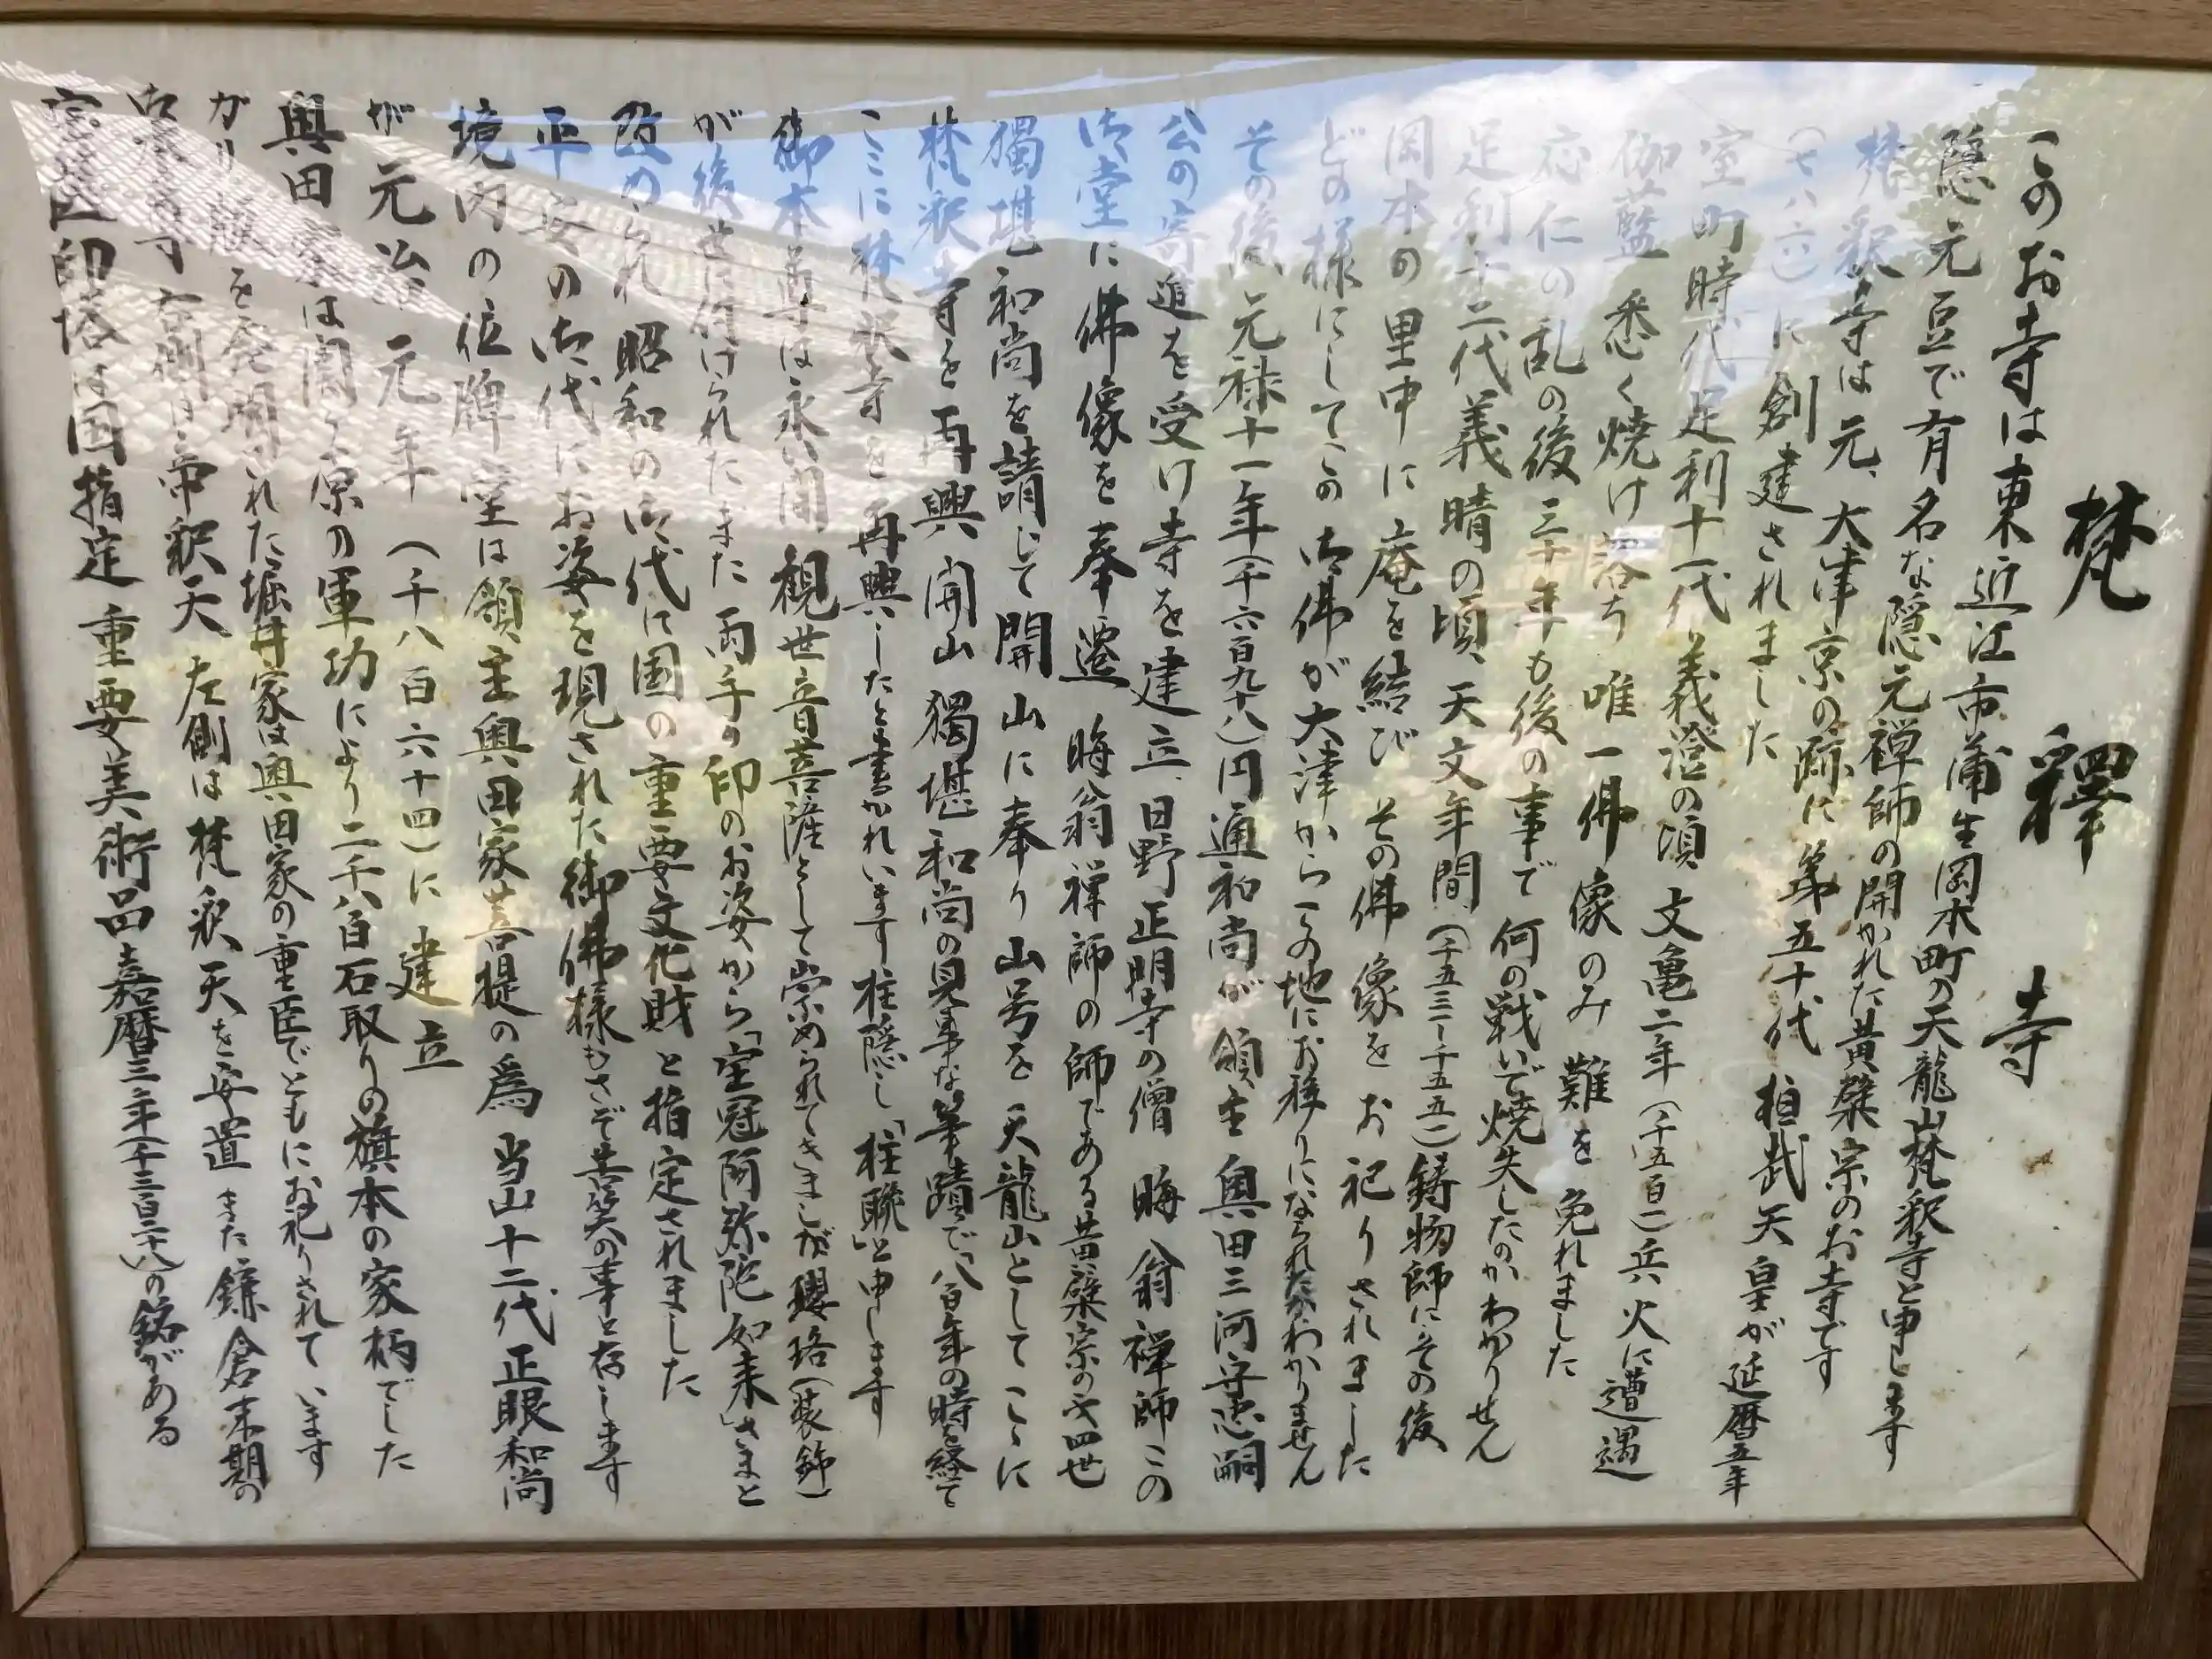 梵釋寺
このお寺は東近江市蒲生岡本町の天龍山梵釈寺と申します
隠元豆で有名な隠元禅師の開かれた黄檗宗のお寺です
梵釈寺は元、大津京の跡に第五十代 桓武天皇が延暦五年
(七八六)に創建されました
室町時代足利十一代 義澄の頃 文亀二年(千五百二)兵火に遭遇
伽藍悉く焼け落ち 唯一佛像のみ難を免れました
応仁の乱の後三十年も後の事で何の戦いで焼失したのかわかりせん
足利十二代義晴の頃、天文年間(千五三二ー千五五二)鋳物師にその後
岡本の里中に庵を結び その佛像をお祀りされました
どの様にしてこの御佛が大津からこの地にお移りになられたかわかりません
その後、元禄十一年(千六百九十八)円通和尚が領主奥田三河守忠嗣
公の寄進を受け寺を建立、日野正明寺の僧 晦翁禅師この
御堂に佛像を奉遷 晦翁禅師の師である黄檗宗の四世
獨堪和尚を請じて開山に奉り山号を天龍山としてここに
梵釈寺を再興 開山獨堪和尚の見事な筆蹟で、八百年の時を経て
ここに梵釈寺を再興したと書かれています 柱隠し「柱聯」と申します
御本尊は永い間 観世音菩薩として崇められてきましが瓔珞(装飾)
が後世付けられたまた両手の印のお姿から「宝冠阿弥陀如来」さまと
改められ昭和の御代に国の重要文化財と指定されました
平安の御代にお姿を現された御佛様もさぞ苦笑の事と存じます
境内の位牌堂は領主奥田家菩提の為 当山十二代正眼和尚
が元治元年(千八百六十四)に建立
奥田家は関ヶ原の軍功により二千八百石取りの旗本の家柄でした
ガリ版を発明された堀井家は奥田家の重臣でともにお祀りされています
御本尊右側は帝釈天 左側は梵釈天を安置また鎌倉末期の
宝篋印塔は国指定重要美術品嘉暦三年(千三百二十八)の銘がある